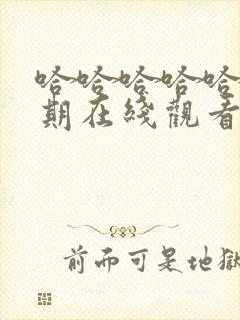 哈哈哈哈哈
期在綫觀看
前而可是地獄